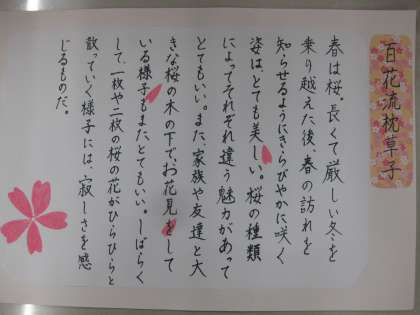 百花流枕草子
春は桜。長くて厳しい冬を
乗り越えた後、春の訪れを
知らせるようにきらびやかに咲く
姿はとても美しい。桜の種類
によってそれぞれ違う魅力があって
とてもいい。また、家族や友達と大
きな桜の木の下で、お花見をして
いる様子もまたとてもいい。しばらく
して、一枚や二枚の桜の花がひらひらと
散っていく様子には、寂しさを感
じるものだ。